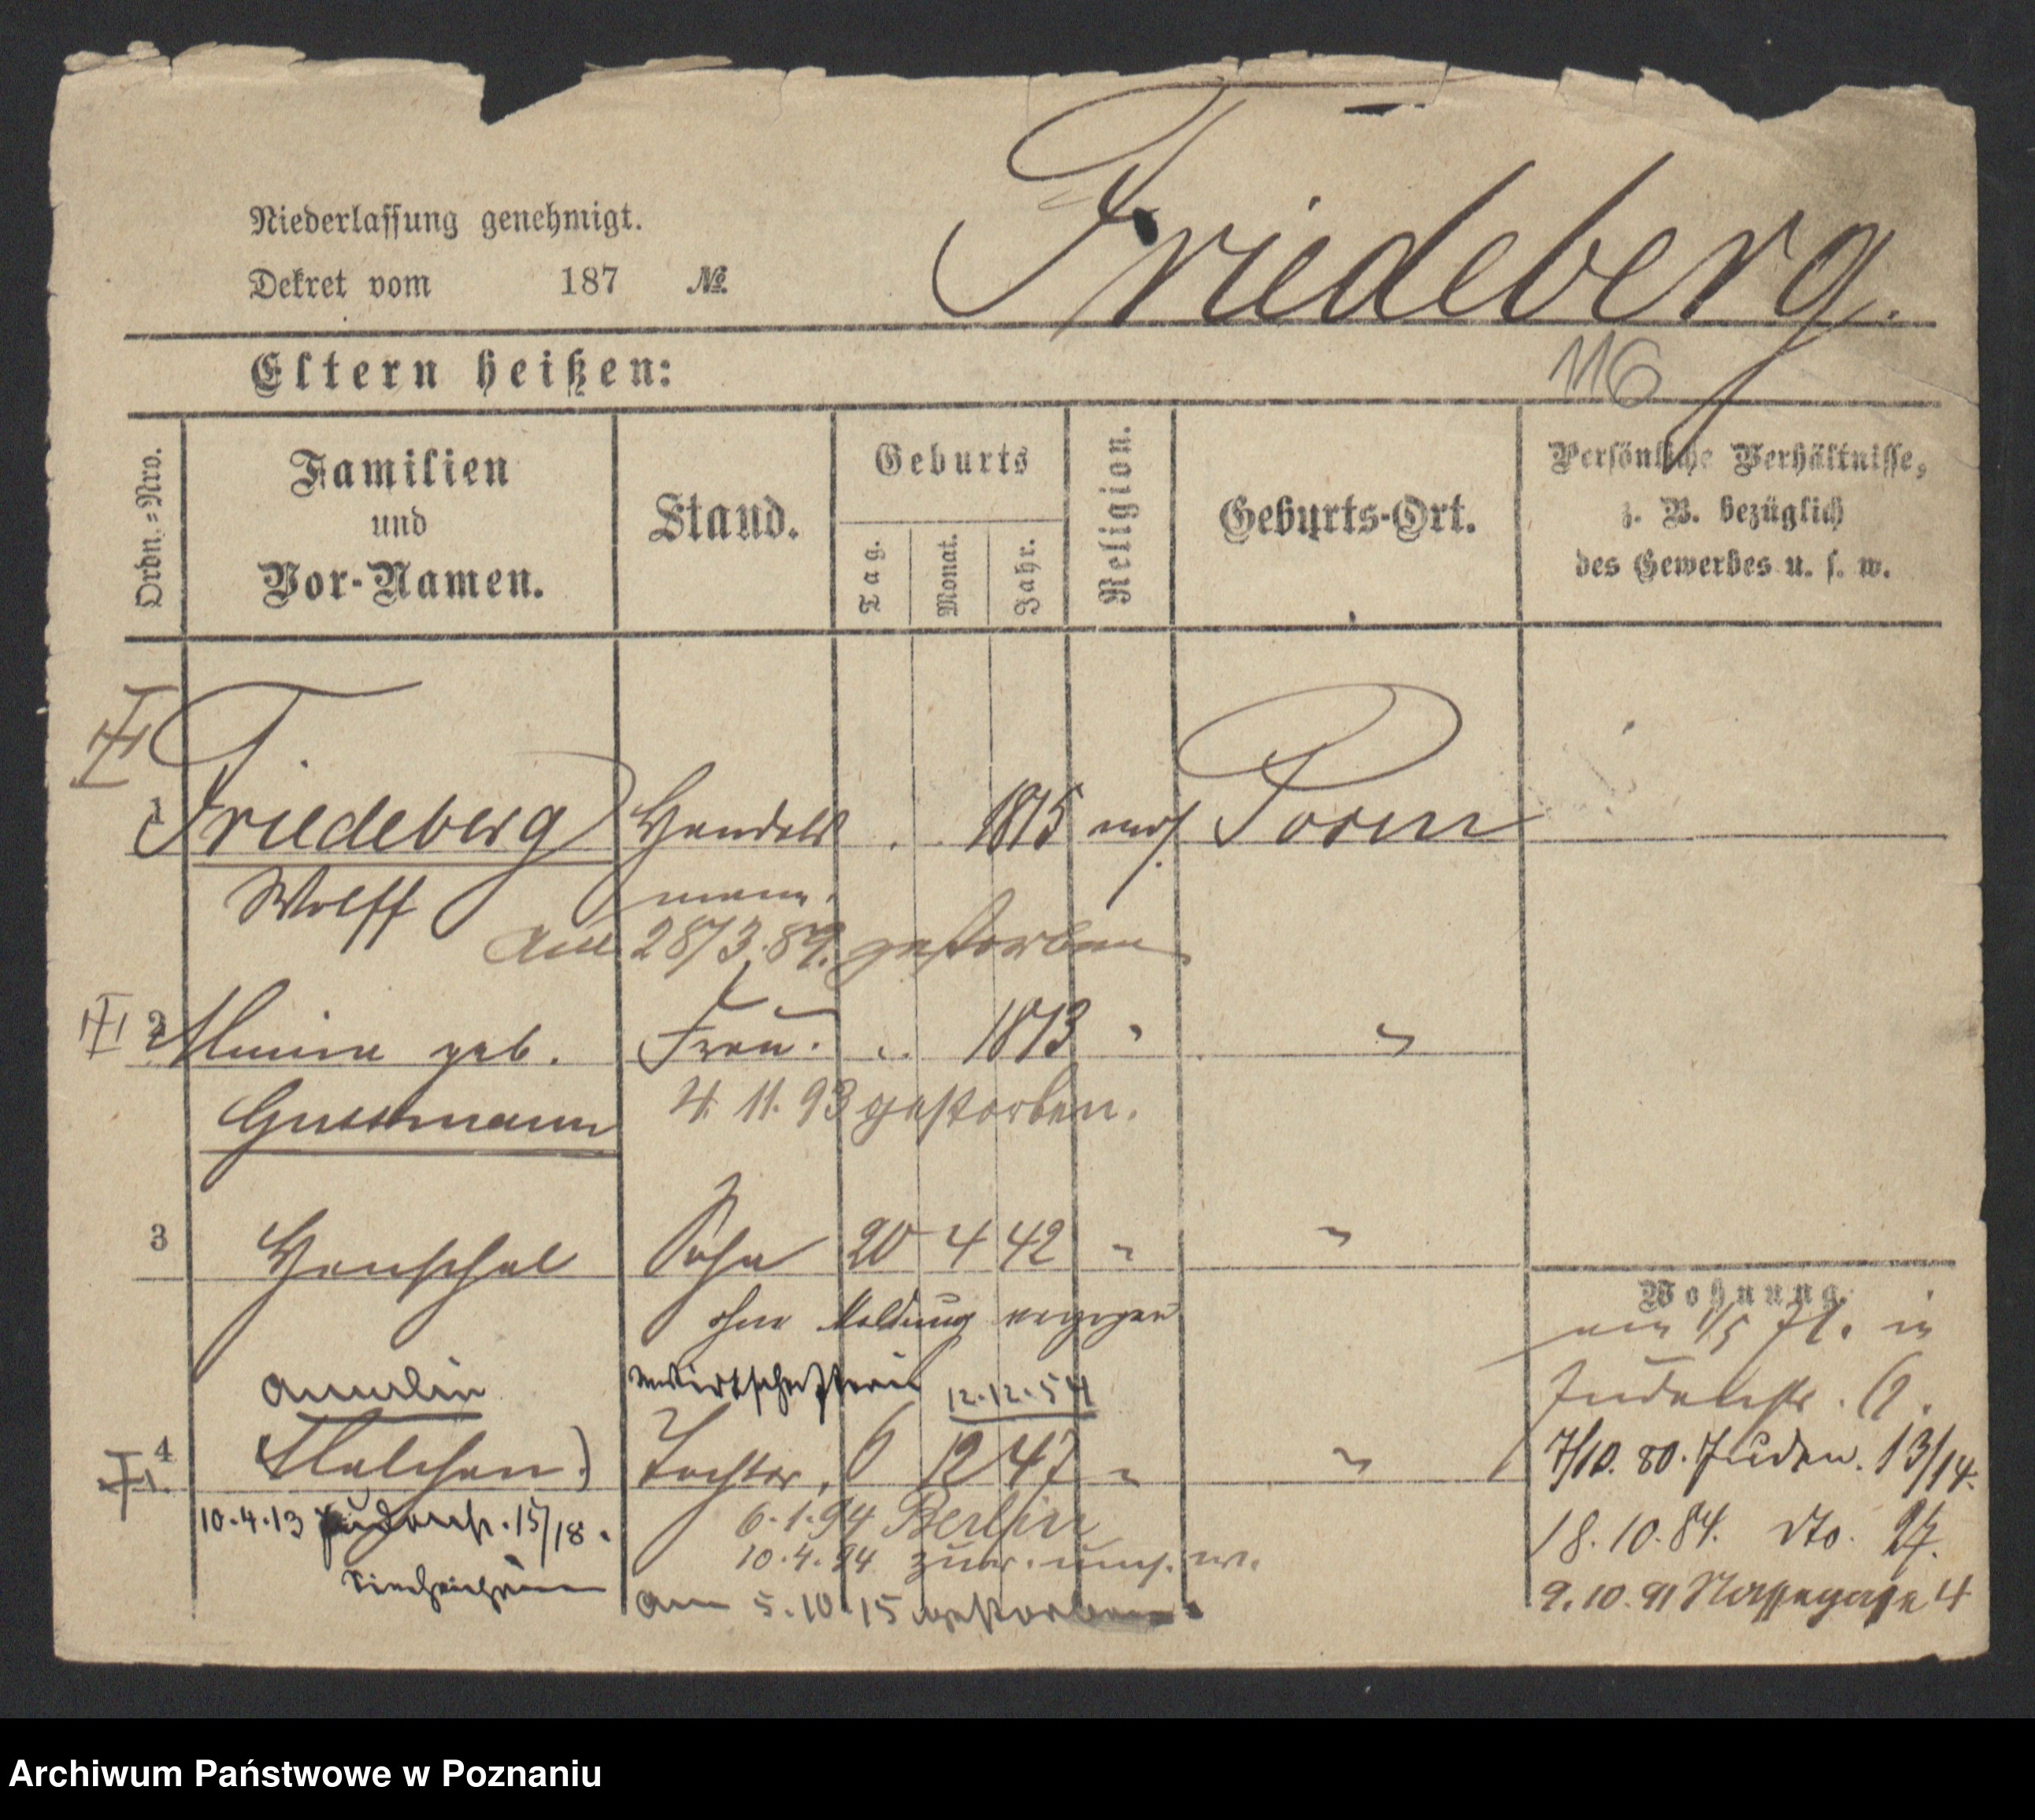 Friedeberg.
Niederlassung genehmigt.
Dekret vom 187 №
116
Eltern heißen:
Ordn.=Nro.
Familien
und
Vor-Namen.
Stand.
Geburts
Tag.
Monat.
Jahr.
Religion.
Geburts-Ort.
Persönliche Verhältnisse,
z. B. bezüglich
des Gewerbes u. s. w.
1 Friedeberg Handels 1815 mos. Posen
Wolff mann.
am 28/3.89. gestorben
2 geb. Frau. 1813 "
4. 11. 93 gestorben.
3 Henschel Sohn 20 4 42 " "
ohne Meldung
Wohnung.
am 1/5 71. in
Judenstr.
Wirtschafterin 12.12.54
4 Malchen) Tochter 6 12 47 " "
7/10. 80. Juden. 13/14.
10.4.13 Judenstr. 15/18.
6.1.94 Berlin
18. 10. 84. dto. 27.
10.4.94 zur.
am 5.10.15 gestorben.
9. 10. 91 Nassegasse 4
Archiwum Państwowe w Poznaniu